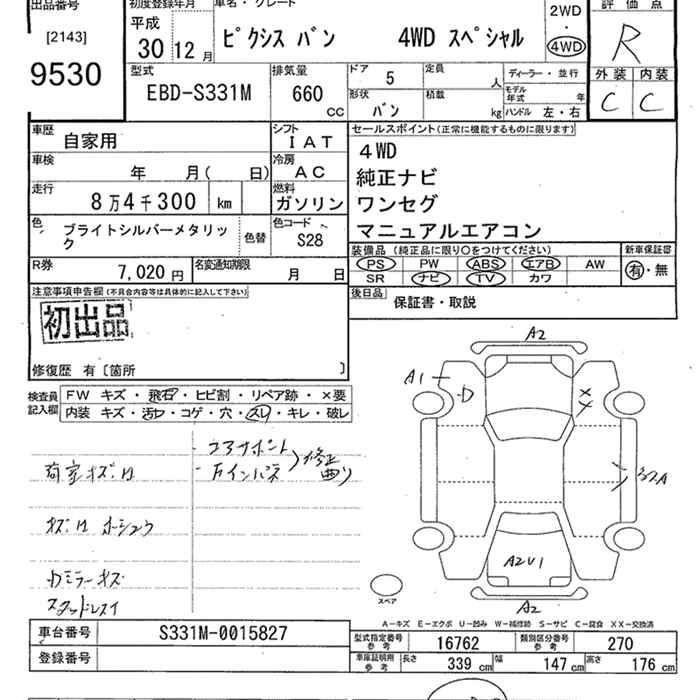 出品番号 初度登録年月 車名・グレード 評価点
[2143] 平成 2WD・
9530 30年12月 ピクシス バン 4WD スペシャル 4WD R
型式 排気量 ドア 5 定員 人 ディーラー・並行 外装 内装
EBD-S331M 660 CC 形状 バン 積載 kg モデル年式 年 ハンドル 左・右 C C
車歴 自家用 シフト IAT セールスポイント(正常に機能するものに限ります)
車検 年 月( 日) 冷房 AC 4WD
走行 8万4千300 km 燃料 ガソリン 純正ナビ
ワンセグ
マニュアルエアコン
色 ブライトシルバーメタリック 色替 色コード S28
装備品(純正品に限り○をつけてください) 新車保証書
R券 7,020円 名変通知期限 月 日 PS PW ABS エアB AW 有・無
SR ナビ TV カワ
注意事項申告欄(不具合内容等は具体的に記入して下さい) 後日品 保証書・取説
初出品
修復歴 有〔箇所 〕
検査員記入欄 FW キズ・飛石・ヒビ割・リペア跡・×要
内装 キズ・汚れ・コゲ・穴・スレ・キレ・破レ
A2
A1
D
XX
・コアサポート
・左インパネ
修正
曲り
荷室キズ
キズ
ミラーキズ
スタッドレス
A2U1
A2
スペア
A-キズ E-エクボ U-凹み W-補修跡 S-サビ C-腐食 XX-交換済
車台番号 S331M-0015827 型式指定番号 参考 16762 類別区分番号 参考 270
登録番号 車庫証明用 参考 長さ 339 cm 幅 147 cm 高さ 176 cm